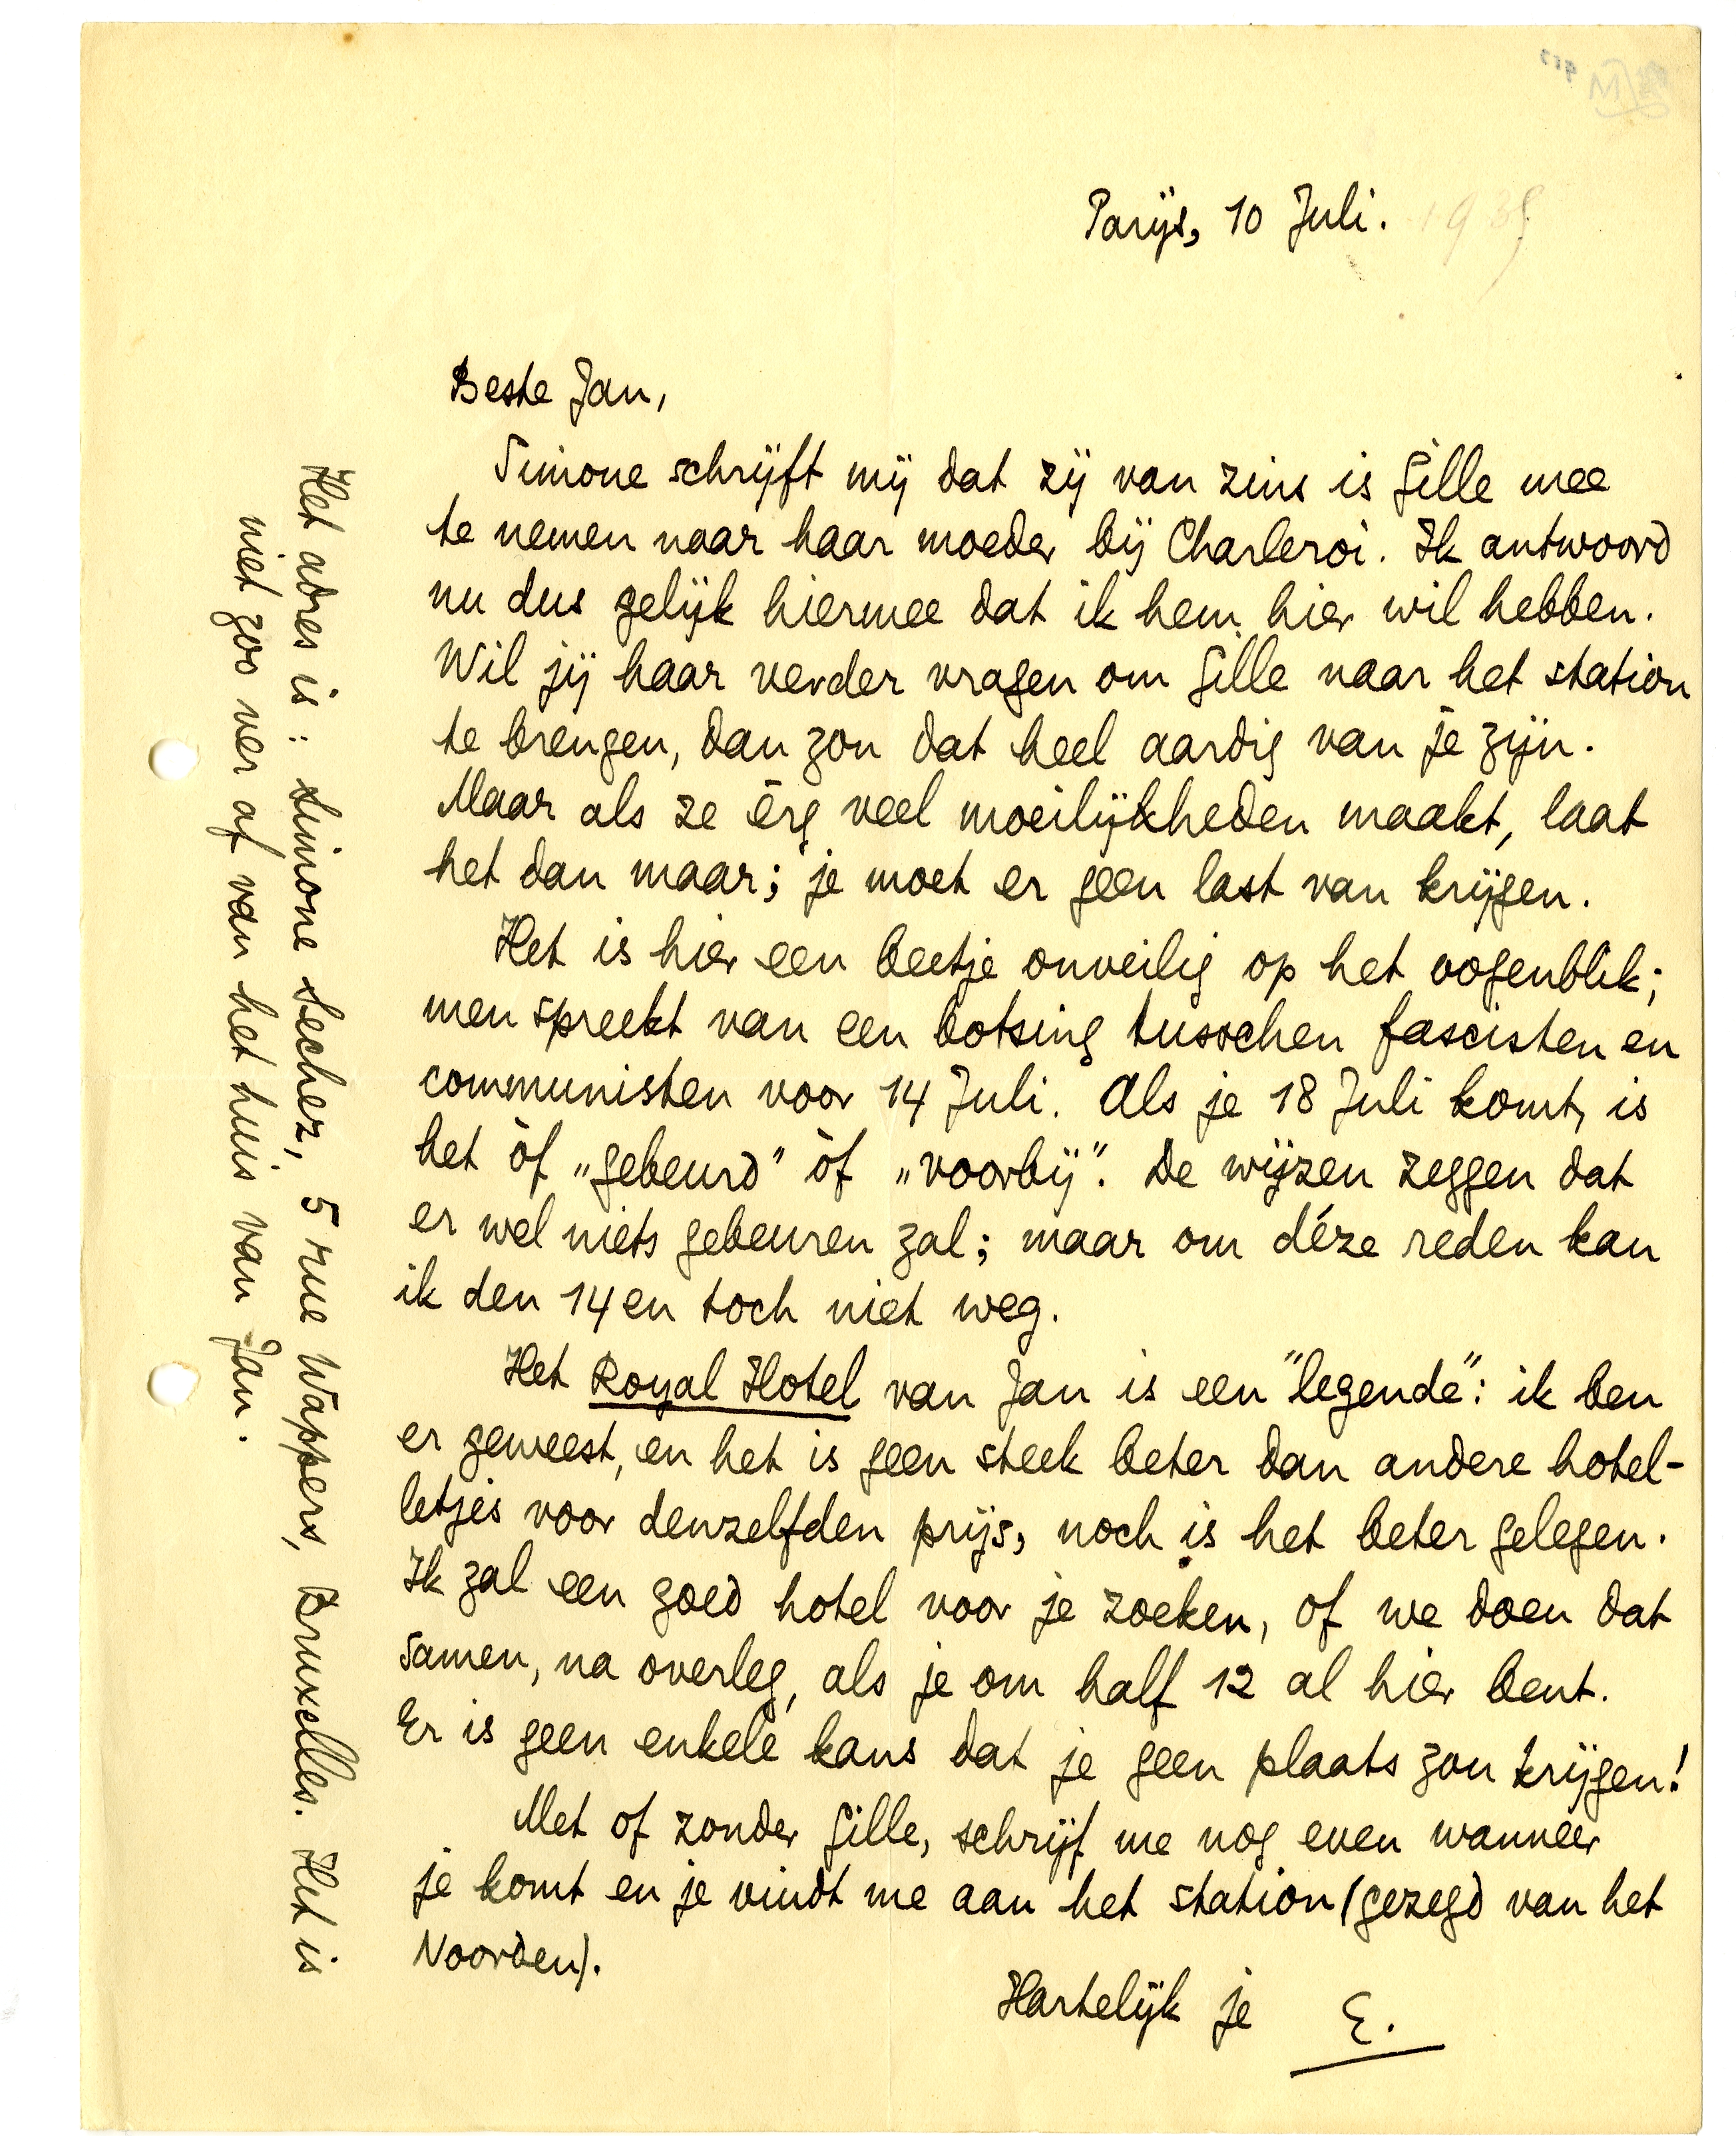 Parijs, 10 Juli. 1935
Beste Jan,
Simone schrijft mij dat zij van zins is Gille mee
te nemen naar haar moeder bij Charleroi. Ik antwoord
nu dus gelijk hiermee dat ik hem hier wil hebben.
Wil jij haar verder vragen om Gille naar het station
te brengen, dan zou dat heel aardig van je zijn.
Maar als ze érg veel moeilijkheden maakt, laat
het dan maar; je moet er geen last van krijgen.
Het is hier een beetje onveilig op het oogenblik;
men spreekt van een botsing tusschen fascisten en
communisten voor 14 Juli. Als je 18 Juli komt, is
het òf „gebeurd” òf „voorbij”. De wijzen zeggen dat
er wel niets gebeuren zal; maar om déze reden kan
ik den 14en toch niet weg.
Het Royal Hotel van Jan is een "legende": ik ben
er geweest, en het is geen steek beter dan andere hotel-
letjes voor denzelfden prijs, noch is het beter gelegen.
Ik zal een goed hotel voor je zoeken, of we doen dat
samen, na overleg, als je om half 12 al hier bent.
Er is geen enkele kans dat je geen plaats zou krijgen!
Met of zonder Gille, schrijf me nog even wanneer
je komt en je vindt me aan het station (gezegd van het
Noorden).
Hartelijk je E.
Het adres is: Simone Sechez, 5 rue Wappers, Bruxelles. Het is
niet zoo ver af van het huis van Jan.